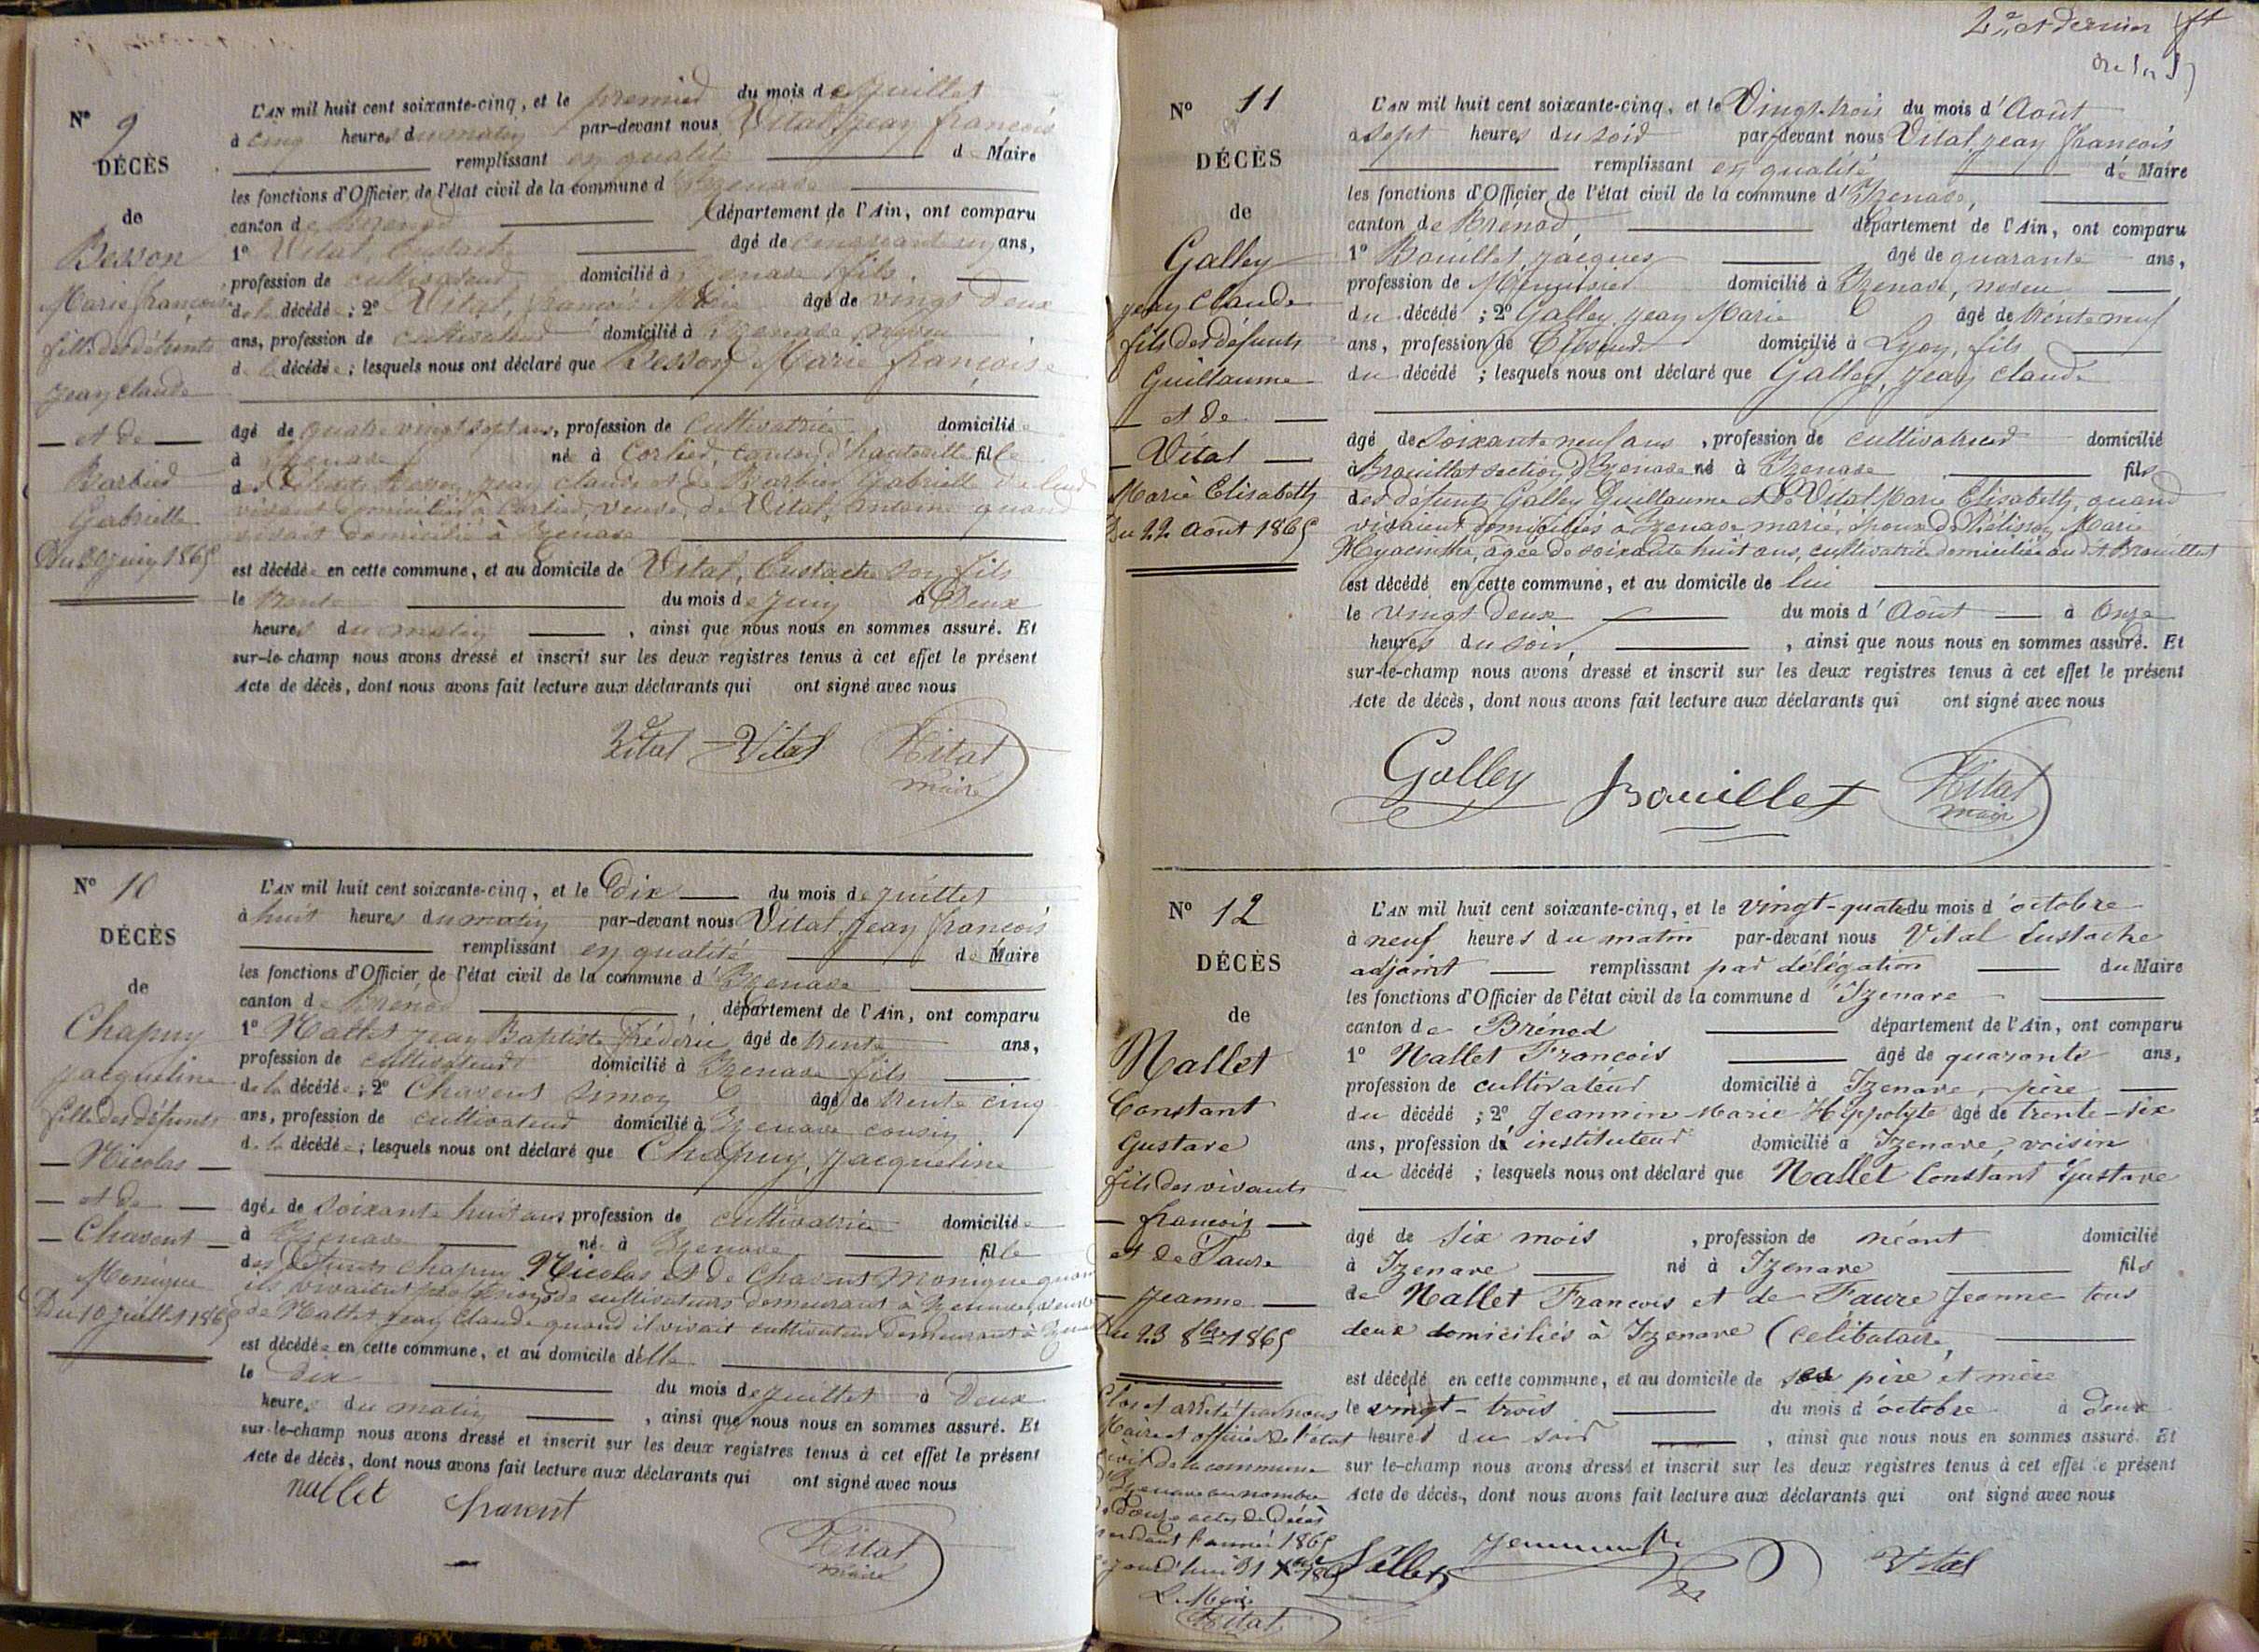 Nº 9
DÉCÈS
de
Besson
Marie françoise
fille des défunts
Jean claude
et de
Barbier
Gabrielle
Du 30 juin 1865
L'AN mil huit cent soixante-cinq, et le premier du mois de Juillet
à cinq heures du matin par-devant nous Vital, Jean françois
remplissant en qualité de Maire
les fonctions d'Officier de l'état civil de la commune d'Izenave
canton de Brénod département de l'Ain, ont comparu
1º Vital, Eustache âgé de cinquante un ans,
profession de cultivateur domicilié à Izenave fils
de la décédée ; 2º Vital, françois Marie âgé de vingt deux
ans, profession de cultivateur domicilié à Izenave neveu
de la décédée ; lesquels nous ont déclaré que Besson Marie françoise
âgé de quatre vingt sept ans, profession de cultivatrice domiciliée
à Izenave née à Corlier, canton d'hauteville fille
des défunts Besson Jean claude et de Barbier Gabrielle de leur
vivant domiciliés à Corlier, veuve, de Vital, antoine quand
vivait domicilié à Izenave
est décédée en cette commune, et au domicile de Vital, Eustache son fils
le trente du mois de juin à Deux
heures du matin, ainsi que nous nous en sommes assuré. Et
sur-le-champ nous avons dressé et inscrit sur les deux registres tenus à cet effet le présent
Acte de décès, dont nous avons fait lecture aux déclarants qui ont signé avec nous
Vital Vital Vital
maire
Nº 10
DÉCÈS
de
Chapuy
Jacqueline
fille des défunts
Nicolas
et de
Chavent
Monique
Du 10 Juillet 1865
L'AN mil huit cent soixante-cinq, et le Dix du mois de juillet
à huit heures du matin par-devant nous Vital, Jean françois
remplissant en qualité de Maire
les fonctions d'Officier de l'état civil de la commune d'Izenave
canton de Brénod, département de l'Ain, ont comparu
1º Nallet Jean Baptiste frédéric âgé de trente ans,
profession de cultivateur domicilié à Izenave fils
de la décédée ; 2º Chavent Simon âgé de trente cinq
ans, profession de cultivateur domicilié à Izenave cousin
de la décédée ; lesquels nous ont déclaré que Chapuy, Jacqueline
âgée de soixante huit ans profession de cultivatrice domiciliée
à Izenave née à Izenave fille
des défunts chapuy Nicolas et de Chavent Monique quand
ils vivaient profession de cultivateurs demeurant à Izenave, veuve
de Nallet, Jean Claude quand il vivait cultivateur demeurant à Izenave
est décédée en cette commune, et au domicile d'elle
le Dix du mois de juillet à Deux
heures du matin, ainsi que nous nous en sommes assuré. Et
sur-le-champ nous avons dressé et inscrit sur les deux registres tenus à cet effet le présent
Acte de décès, dont nous avons fait lecture aux déclarants qui ont signé avec nous
nallet chavent
Vital
maire
2e et dernier ft
Nº 11
DÉCÈS
de
Galley
Jean Claude
fils des défunts
Guillaume
et de
Vital
Marie Elisabeth
Du 22 Août 1865
L'AN mil huit cent soixante-cinq, et le Vingt-trois du mois d'Août
à sept heures du soir par-devant nous Vital, Jean françois
remplissant en qualité de Maire
les fonctions d'Officier de l'état civil de la commune d'Izenave,
canton de Brénod, département de l'Ain, ont comparu
1º Bouillet, Jacques âgé de quarante ans,
profession de Menuisier domicilié à Izenave, neveu
du décédé ; 2º Galley, Jean Marie âgé de trente neuf
ans, profession de Tisseur domicilié à Lyon, fils
du décédé ; lesquels nous ont déclaré que Galley, Jean claude
âgé de soixante neuf ans, profession de cultivateur domicilié
à Brouillat section d'Izenave né à Izenave fils
des défunts Galley Guillaume et de Vital Marie Elisabeth, quand
vivaient domiciliés à Izenave marié, époux de Hélisson, Marie
Hyacinthe, âgée de soixante huit ans, cultivatrice domiciliée au dit Brouillat
est décédé en cette commune, et au domicile de lui
le vingt deux du mois d'Août à Onze
heures du soir, ainsi que nous nous en sommes assuré. Et
sur-le-champ nous avons dressé et inscrit sur les deux registres tenus à cet effet le présent
Acte de décès, dont nous avons fait lecture aux déclarants qui ont signé avec nous
Galley Bouillet Vital
maire
Nº 12
DÉCÈS
de
Nallet
Constant
Gustave
fils des vivants
françois
et de Faure
Jeanne
Du 23 8bre 1865
L'AN mil huit cent soixante-cinq, et le vingt-quatre du mois d'octobre
à neuf heures du matin par-devant nous Vital Eustache
adjoint remplissant par délégation du Maire
les fonctions d'Officier de l'état civil de la commune d'Izenave
canton de Brénod département de l'Ain, ont comparu
1º Nallet François âgé de quarante ans,
profession de cultivateur domicilié à Izenave, père
du décédé ; 2º Jeannin Marie Hippolyte âgé de trente-six
ans, profession d'instituteur domicilié à Izenave, voisin
du décédé ; lesquels nous ont déclaré que Nallet Constant Gustave
âgé de six mois, profession de néant domicilié
à Izenave né à Izenave fils
de Nallet François et de Faure Jeanne tous
deux domiciliés à Izenave (celibataire,
est décédé en cette commune, et au domicile de ses père et mère
le vingt-trois du mois d'octobre à deux
heures du soir, ainsi que nous nous en sommes assuré. Et
sur-le-champ nous avons dressé et inscrit sur les deux registres tenus à cet effet le présent
Acte de décès, dont nous avons fait lecture aux déclarants qui ont signé avec nous
Nallet Jeannin Vital
Clos et arrêté par nous
Maire et officier de l'état
civil de la commune
d'Izenave au nombre
de Douze actes de Décès
pendant l'année 1865
ce jourd'hui 31 Xbre 1865
Le Maire
Vital